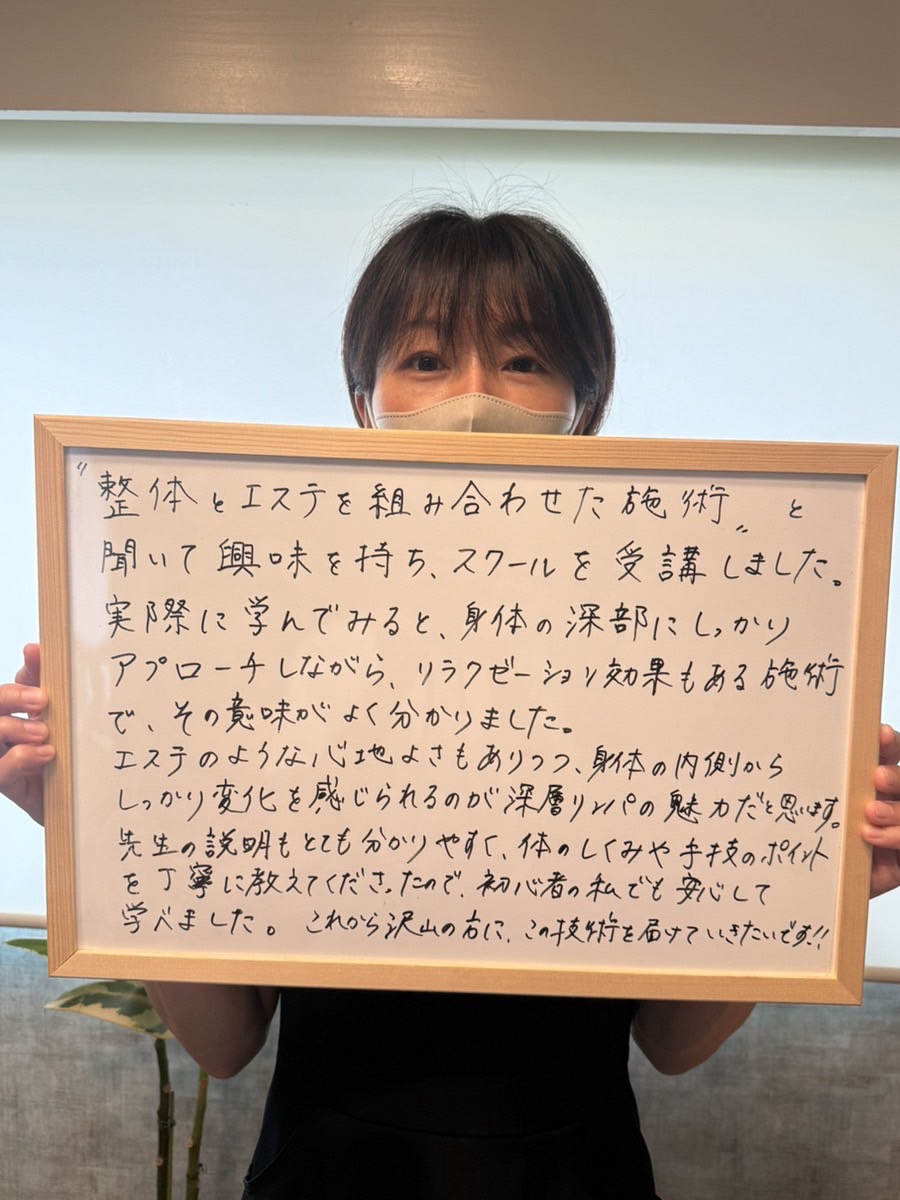 〝整体とエステを組み合わせた施術〟と
聞いて興味を持ち、スクールを受講しました。
実際に学んでみると、身体の深部にしっかり
アプローチしながら、リラクゼーション効果もある施術
で、その意味がよく分かりました。
エステのような心地よさもありつつ、身体の内側から
しっかり変化を感じられるのが深層リンパの魅力だと思います。
先生の説明もとても分かりやすく、体のしくみや手技のポイント
を丁寧に教えてくださったので、初心者の私でも安心して
学べました。これから沢山の方に、この技術を届けていきたいです!!